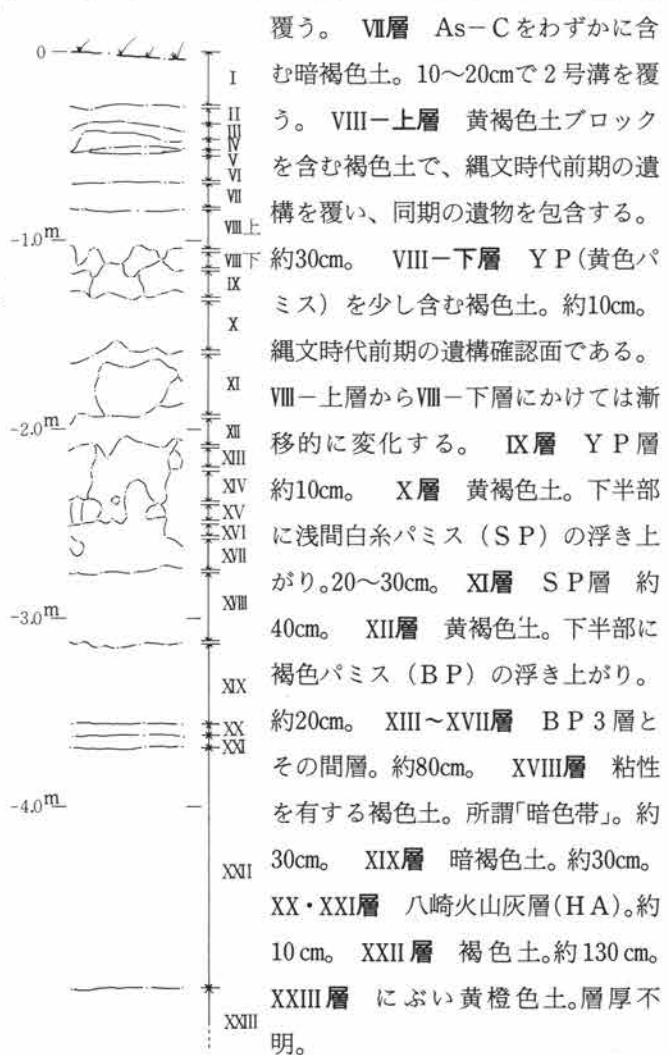 0
-1.0m
-2.0m
-3.0m
-4.0m
I
II
III
IV
V
VI
VII
VIII上
VIII下
IX
X
XI
XII
XIII
XIV
XV
XVI
XVII
XVIII
XIX
XX
XXI
XXII
XXIII
覆う。 VII層 As-Cをわずかに含
む暗褐色土。10~20cmで2号溝を覆
う。 VIII-上層 黄褐色土ブロック
を含む褐色土で、縄文時代前期の遺
構を覆い、同期の遺物を包含する。
約30cm。 VIII-下層 YP(黄色パ
ミス)を少し含む褐色土。約10cm。
縄文時代前期の遺構確認面である。
VIII-上層からVIII-下層にかけては漸
移的に変化する。 IX層 YP層
約10cm。 X層 黄褐色土。下半部
に浅間白糸パミス(SP)の浮き上
がり。20~30cm。 XI層 SP層 約
40cm。 XII層 黄褐色土。下半部に
褐色パミス(BP)の浮き上がり。
約20cm。 XIII~XVII層 BP3層と
その間層。約80cm。 XVIII層 粘性
を有する褐色土。所謂「暗色帯」。約
30cm。 XIX層 暗褐色土。約30cm。
XX・XXI層 八崎火山灰層(HA)。約
10cm。 XXII層 褐色土。約130cm。
XXIII層 にぶい黄橙色土。層厚不
明。